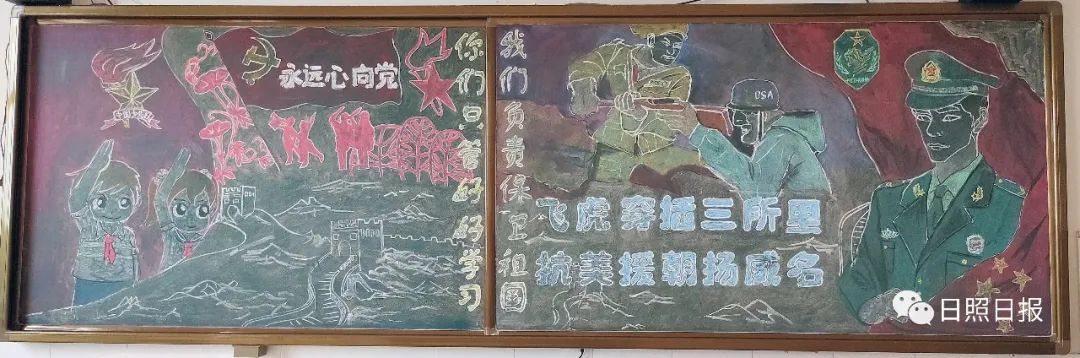 永远心向党
你们只管好好学习
我们负责保卫祖国
USA
飞虎穿插三所里
抗美援朝扬威名
日照日报